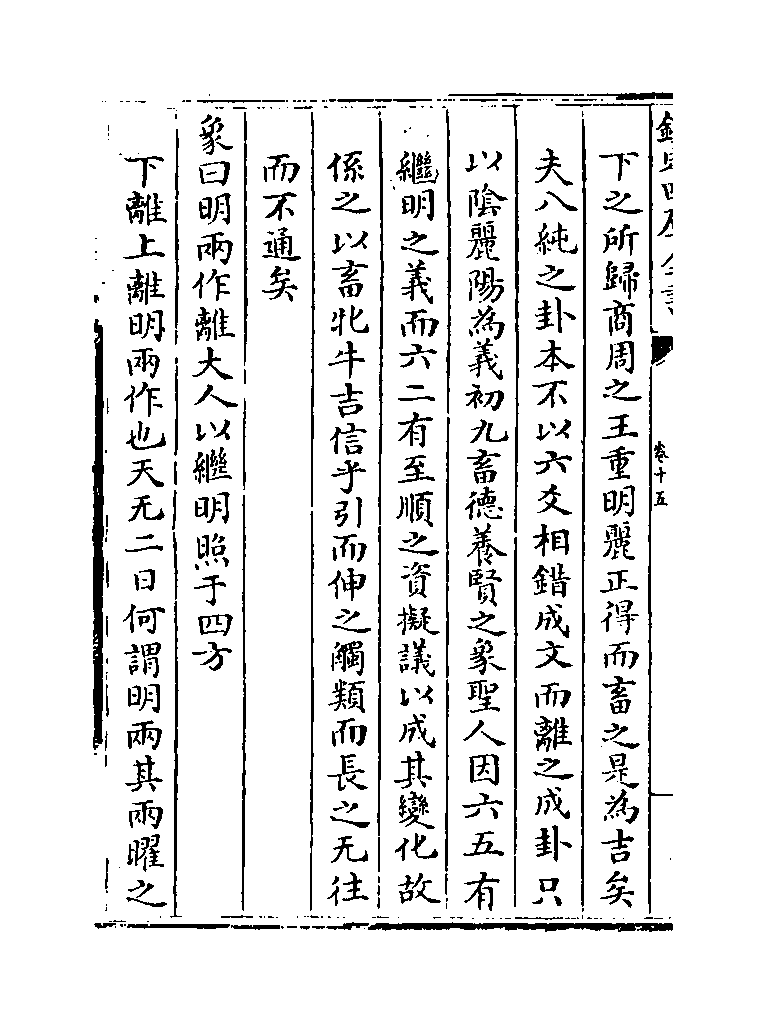 欽定四庫全書
卷十五
下之所歸商周之王重明麗正得而畜之是為吉矣
夫八純之卦本不以六爻相錯成文而離之成卦只
以陰麗陽為義初九畜德養賢之象聖人因六五有
繼明之義而六二有至順之資擬議以成其變化故
係之以畜牝牛吉信乎引而伸之觸類而長之无往
而不通矣
象曰明兩作離大人以繼明照于四方
下離上離明兩作也天无二日何謂明兩其兩曜之